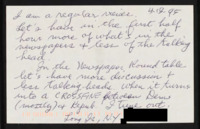 I am a regular viewer 4.12.95
let's have in the first half
hour more of what's in the
newspapers & less of the talking
head.
In the Newspaper Round table
let's have more discussion &
less talking-heads when it turns
into a CROSSFIRE between Dems
(mostly) & Repub I tune out.
NY